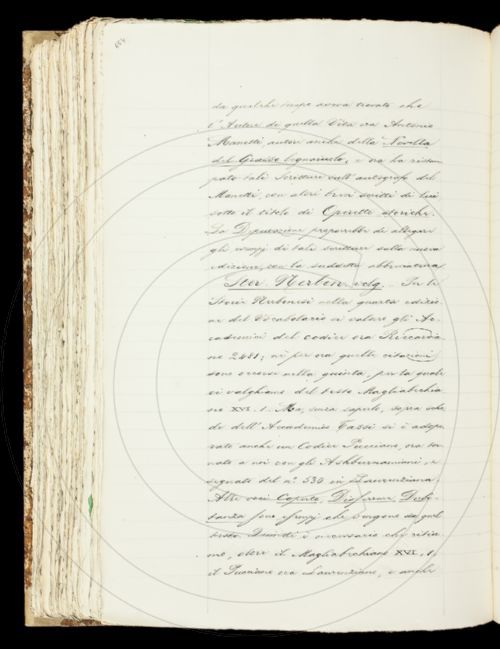 da qualche tempo aveva trovato che
l'Autore di quella Vita era Antonio
Manetti autore anche della Novella
del Grasso legnaiuolo, e ora ha ristam
pato tali Scritture sull'autografo del
Manetti, con altri brevi scritti di lui
sotto il titolo di Operette istoriche.
La Deputazione proporrebbe di allegare
gli esempj di tali scritture sulla nuova
edizione, con la suddetta abbreviatura
Stor. Nerbon. volg. In le
Storie Nerbonesi nella quarta edizio
ne del Vocabolario si valsero gli Ac
cademici del codice ora Riccardia
no 2481; nè per ora quelle citazioni
sono occorse nella quinta, per la quale
si valghono del testo Magliabechia
no XVI. 1. Ma, senza saperlo, sopra sche
de dell'Accademico Fassi si è adope
rato anche un Codice Pucciano, ora tor
nato a noi con gli Ashburnamiani e
segnato del n.° 530 in Laurenziana.
Alle voci Coperta, Disfermo, Dubi
tanza sono esempj che vengono da quel
testo. Quindi è necessario citi
mo, oltre il Magliabechiano XVI. 1,
il Pucciano ora Laurenziano, e anche